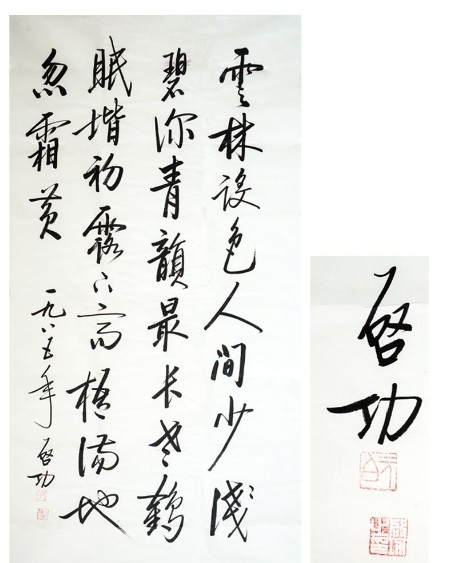 雲林設色人間少淺
碧深青韻最长老鶴
眠堦初露下高梧滿地
忽霜黄 一九八五年 啓功
啓功